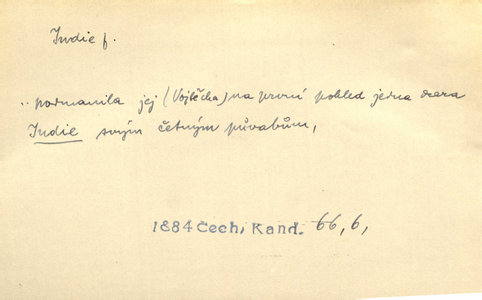 Indie f.
.. podmanila jej (Vojtěcha) na první pohled jedna dcera
Indie svým četným půvabům,
1884 Čech, Kand. 66, 6,